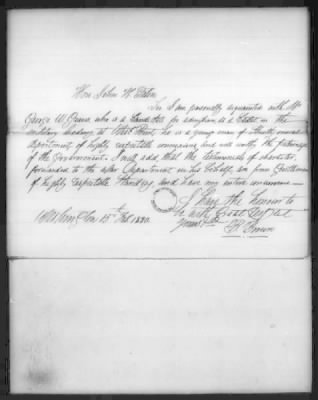 Hon John H. Eaton
Sir I am personally acquainted with Mr
George W. who is a Candidate for admission as a Cadet in the
military academy at West Point, he is a young man of moral
deportment of highly respectable connexions and well worthy the patronage
of the Government. I will add that the testimonials of character
forwarded to the War Department in his behalf, are from Gentlemen
of highly respectable standing, and have my entire
I have the honor to
be with Great Respect
Yours &c
Brown
15th Feb 1830